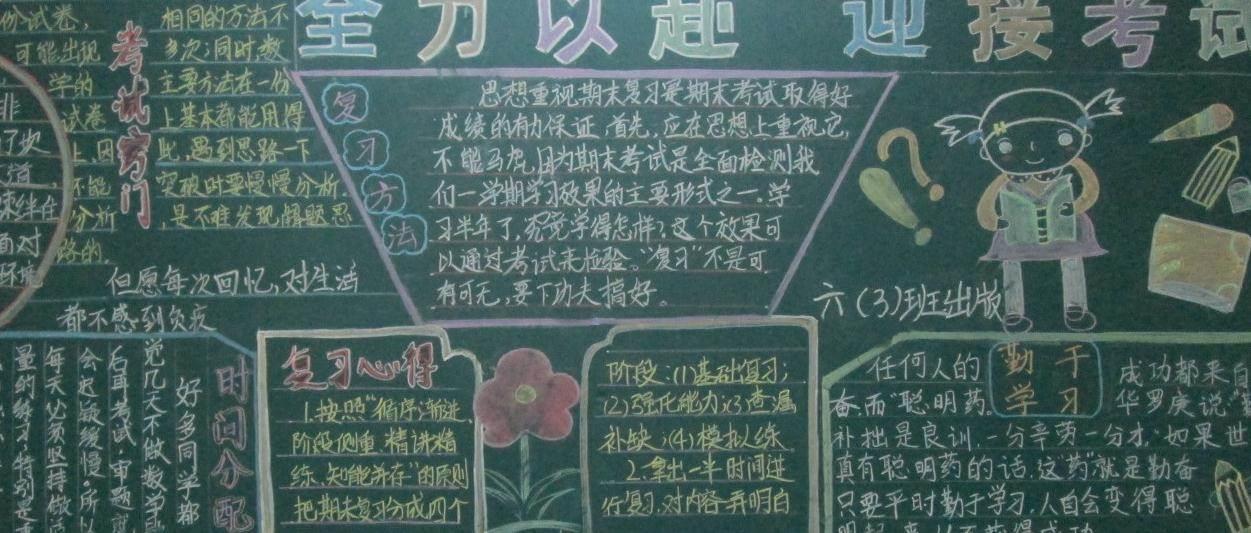 全力以赴 迎接考试
份试卷,
可能出现
学的
试卷
上,因
不能
分析
路的.
考试窍门
相同的方法不
多次;同时数
主要方法在一份
上基本都能用得
此,遇到思路一下
突破时要慢慢分析
是不难发现解题思
非
了次
道
面对
环境
但愿每次回忆,对生活
都不感到负疚
复习方法
思想重视期末复习是期末考试取得好
成绩的有力保证.首先,应在思想上重视它,
不能马虎,因为期末考试是全面检测我
们一学期学习效果的主要形式之一.学
习半年了,究竟学得怎样?这个效果可
以通过考试来检验。"复习"不是可
有可无,要下功夫搞好。
六(3)班出版
时间分配
好多同学都
觉几天不做数学
后再考试,审题
会迟疑缓慢.所以
每天必须坚持做
量的练习.特别是
复习心得
1.按照"循序渐进
阶段侧重 精讲精
练、知能并存"的原则
把期末复习分成四个
阶段:(1)基础复习;
(2)强化能力;(3)查漏
补缺;(4)模拟练.
2.拿出一半时间进
行复习.对内容弄明白
勤于学习
任何人的
成功都来自
奋而"聪明药。
华罗庚说"
补拙是良训.一分辛劳一分才.如果世
真有聪明药的话.这"药"就是勤奋
只要平时勤于学习.人自会变得聪